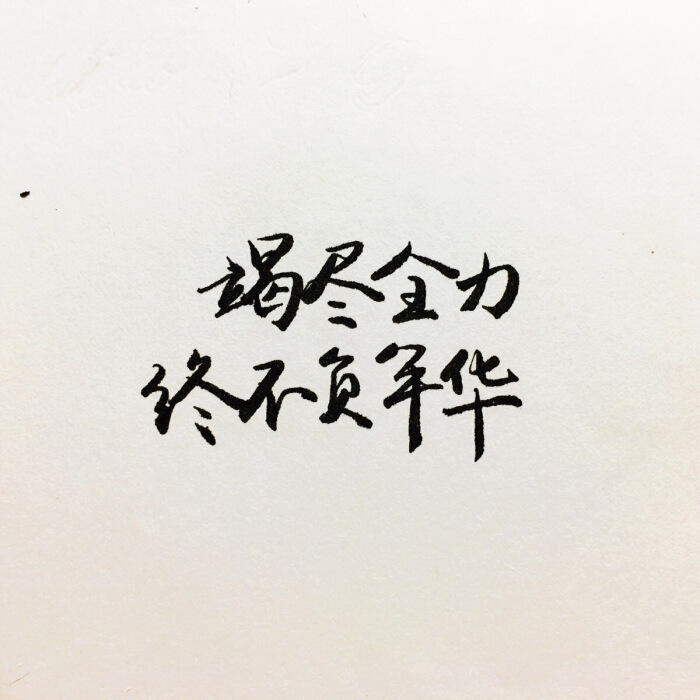 竭尽全力
终不负年华